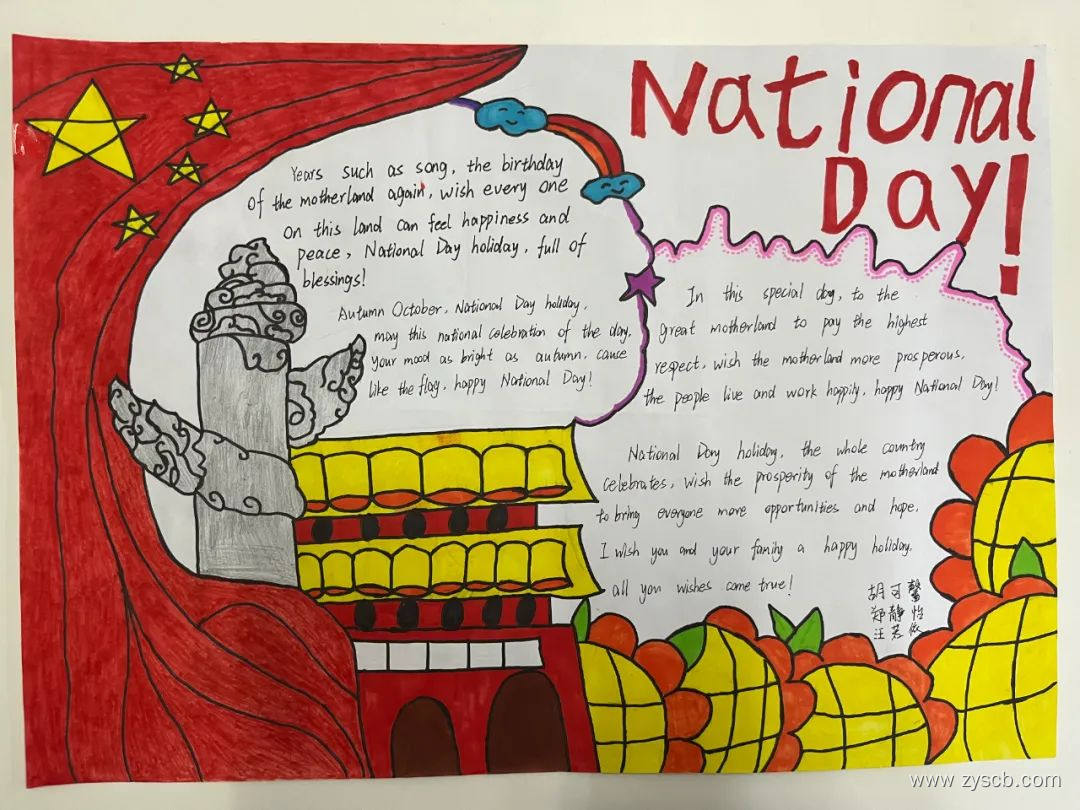 National
Day!
Years such as song, the birthday
of the motherland again, wish every one
on this land can feel happiness and
peace, National Day holiday, full of
blessings!
Autumn October, National Day holiday,
may this national celebration of the day,
your mood as bright as autumn, cause
like the flag, happy National Day!
In this special day, to the
great motherland to pay the highest
respect, wish the motherland more prosperous,
the people live and work happily, happy National Day!
National Day holiday, the whole country
celebrates, wish the prosperity of the motherland
to bring everyone more opportunities and hope,
I wish you and your family a happy holiday,
all you wishes come true!
胡可馨
郑静怡
汪若依
www.zyscb.com